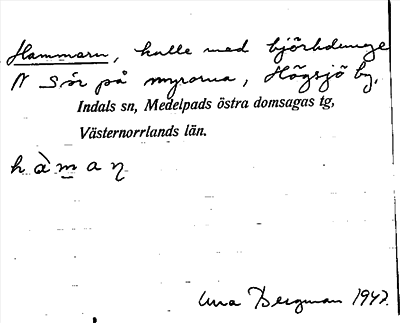 Hammarn, kulle med björkdunge
N Sör på myrorna, Högsjö by,
Indals sn, Medelpads östra domsagas tg,
Västernorrlands län.
hàmaŋ
Una Bergman 1942.